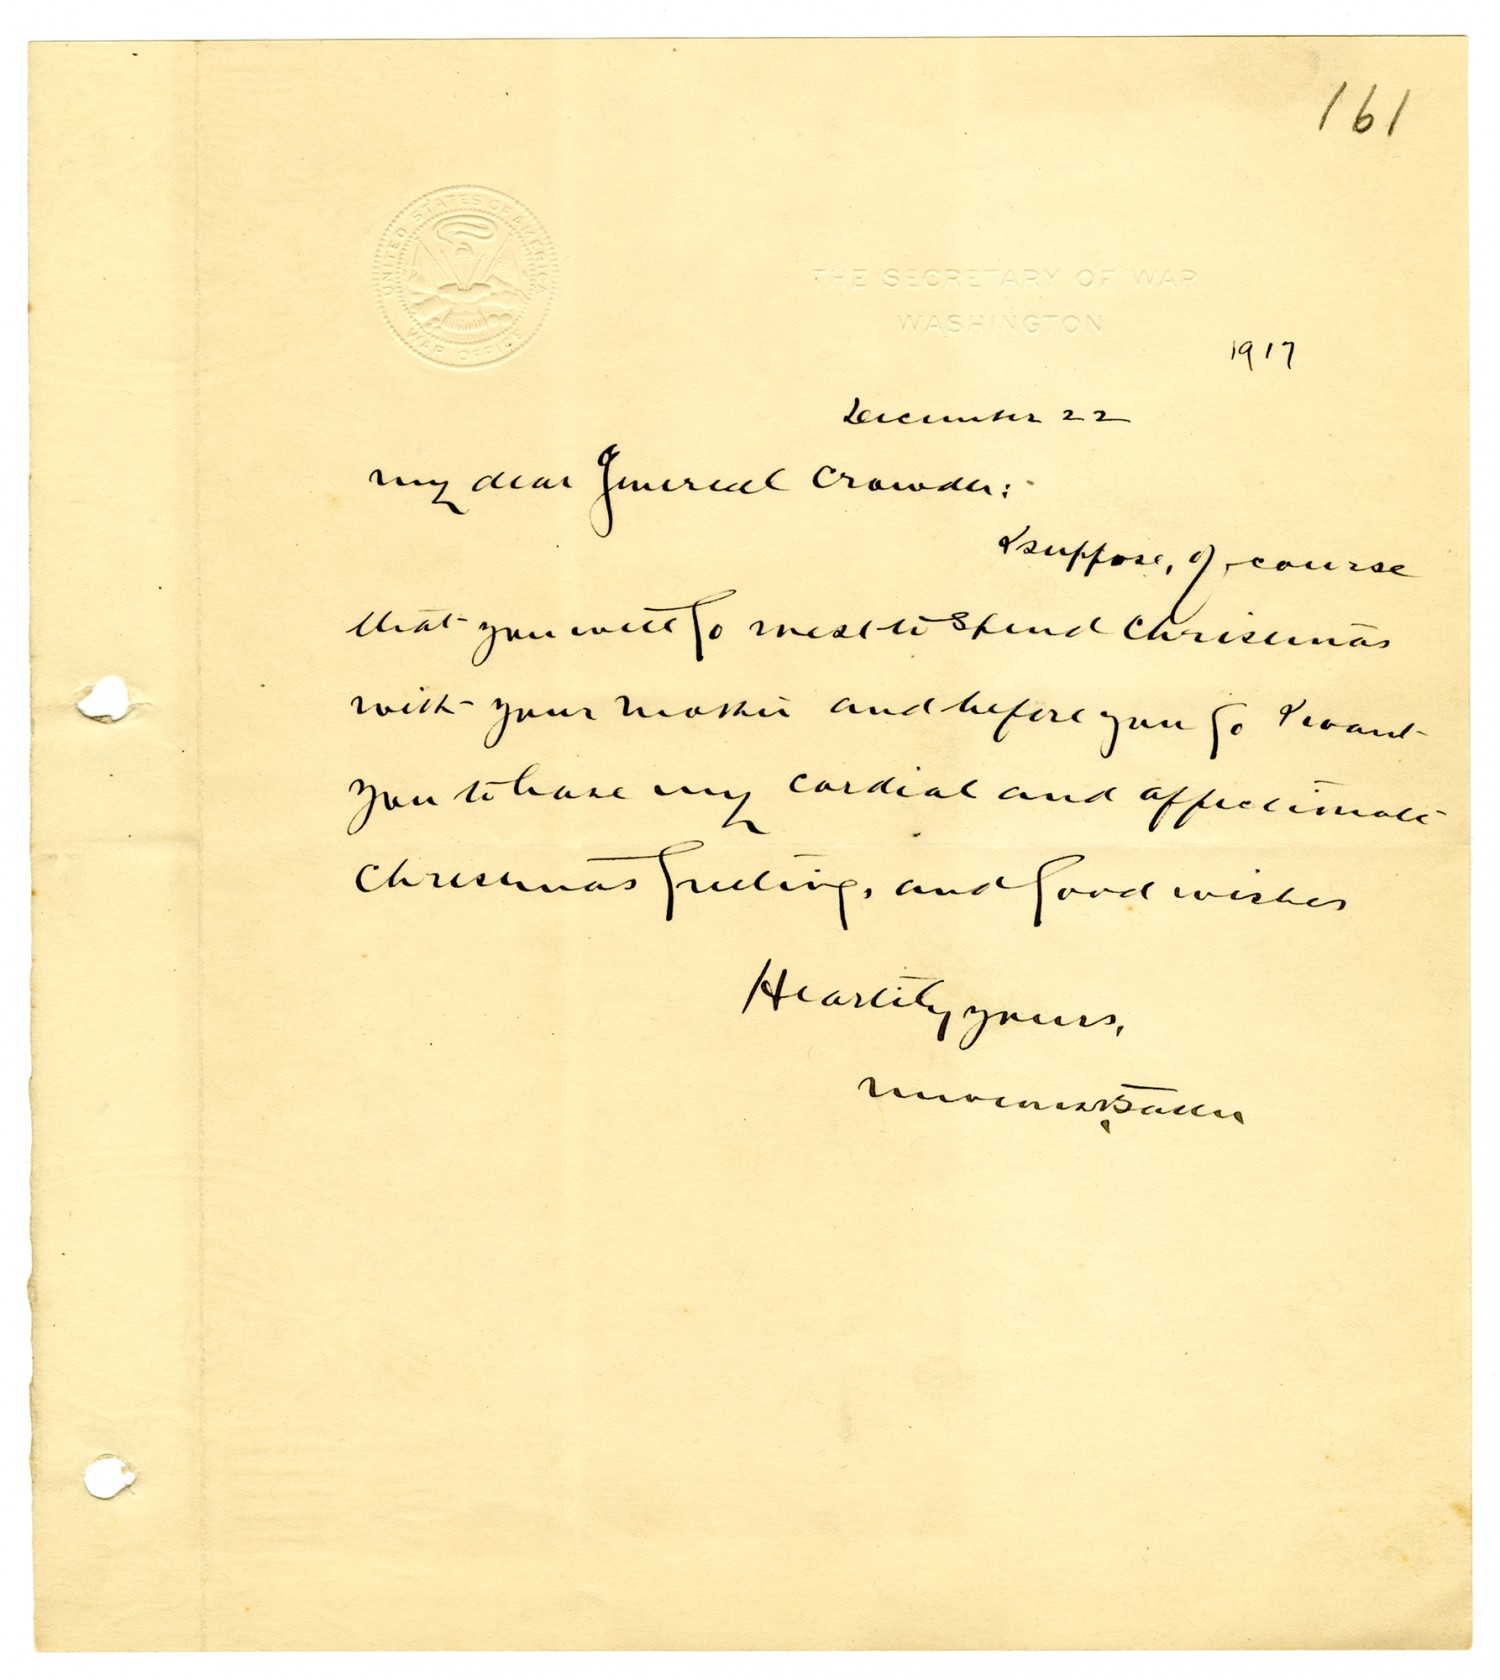 161
UNITED STATES OF AMERICA
WAR OFFICE
THE SECRETARY OF WAR
WASHINGTON
1917
December 22
My dear General Crowder:
I suppose, of course
that you will go west to spend Christmas
with your mother and before you go I want
you to have my cordial and affectionate
Christmas greeting, and good wishes
Heartily yours,
Newton D. Baker